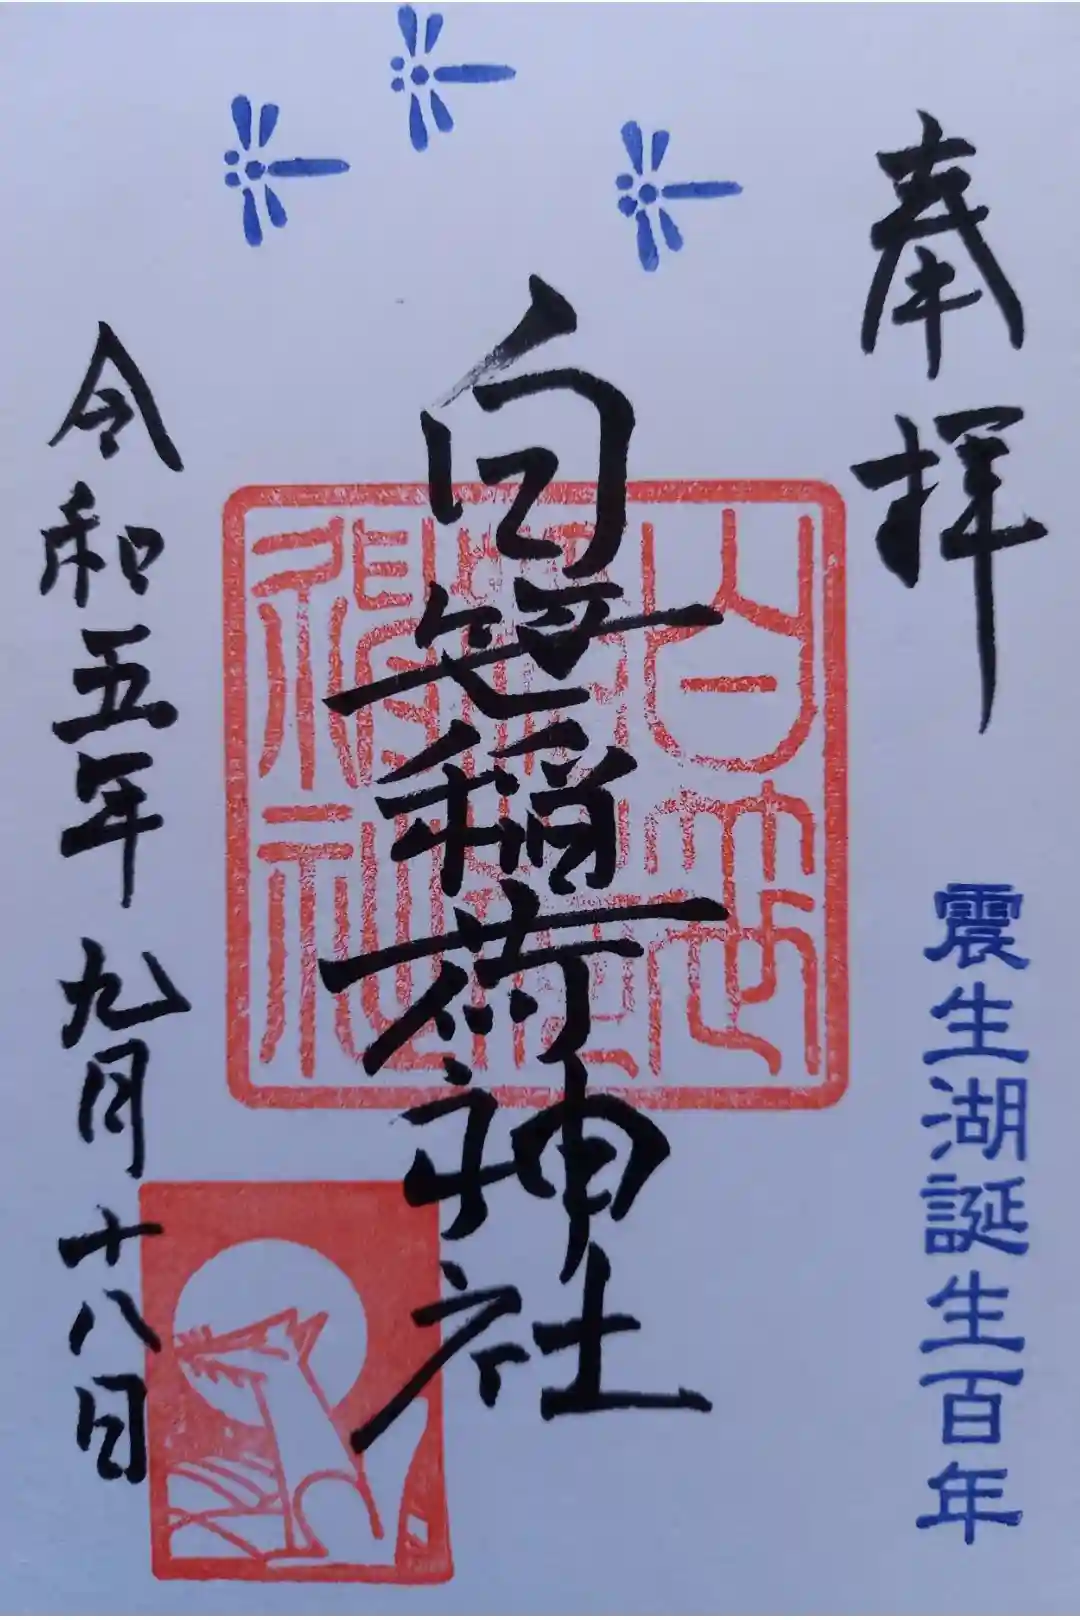 奉拝
震生湖誕生百年
白笹稲荷神社
白笹稲荷神社
令和五年九月十八日